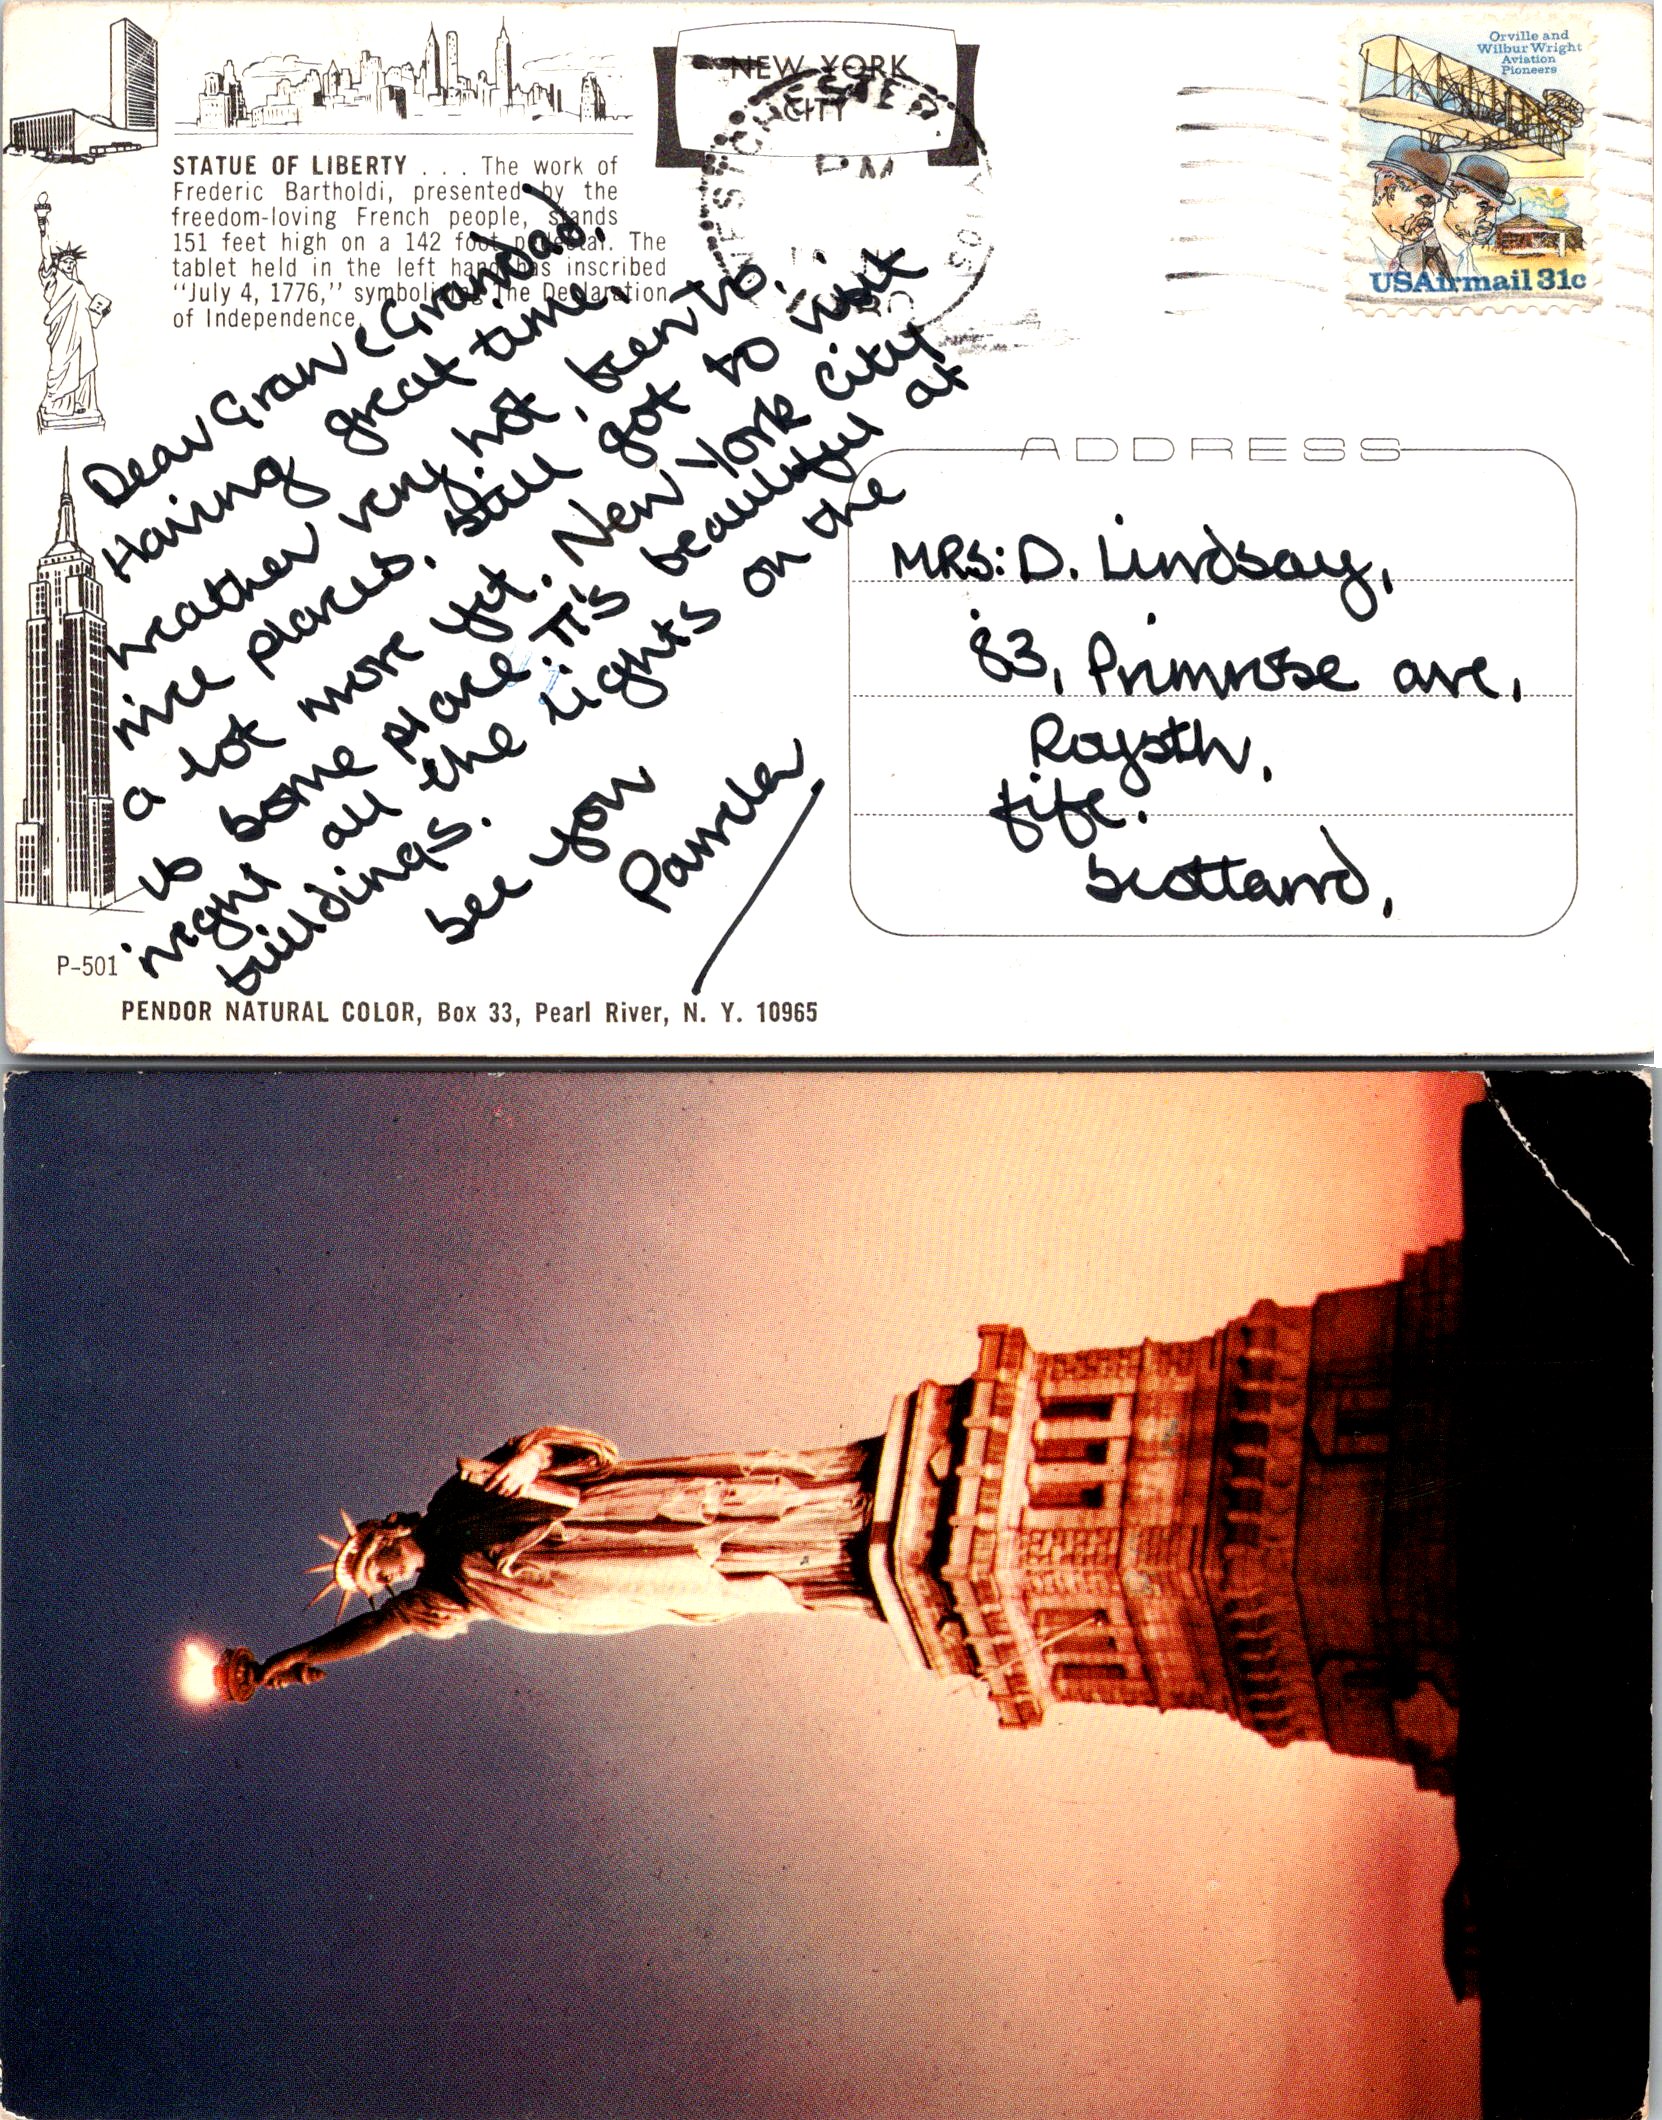 NEW YORK
CITY
Orville and
Wilbur Wright
Aviation
Pioneers
USAirmail 31c
PM
STATUE OF LIBERTY . . . The work of
Frederic Bartholdi, presented by the
freedom-loving French people, stands
151 feet high on a 142 foot pedestal. The
tablet held in the left hand has inscribed
“July 4, 1776,” symbolizing the Declaration
of Independence.
Dear Gran & Grandad,
Having great time,
weather very hot, been to
nice places. still got to visit
a lot more yet. New York City
is some place. it's beautiful at
night all the lights on the
buildings.
see you
Pamela
ADDRESS
MRS: D. Lindsay,
83, Primrose ave,
Rosyth,
fife.
Scotland,
P-501
PENDOR NATURAL COLOR, Box 33, Pearl River, N. Y. 10965